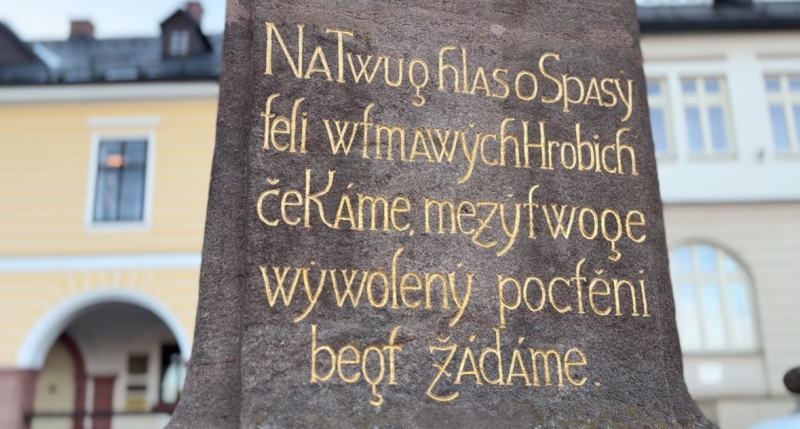 NaTwug hlas o Spasy
ſeli wſmawých Hrobich
čeKáme, mezy ſwoge
wýwolený pocſtěni
begſ Žádáme.